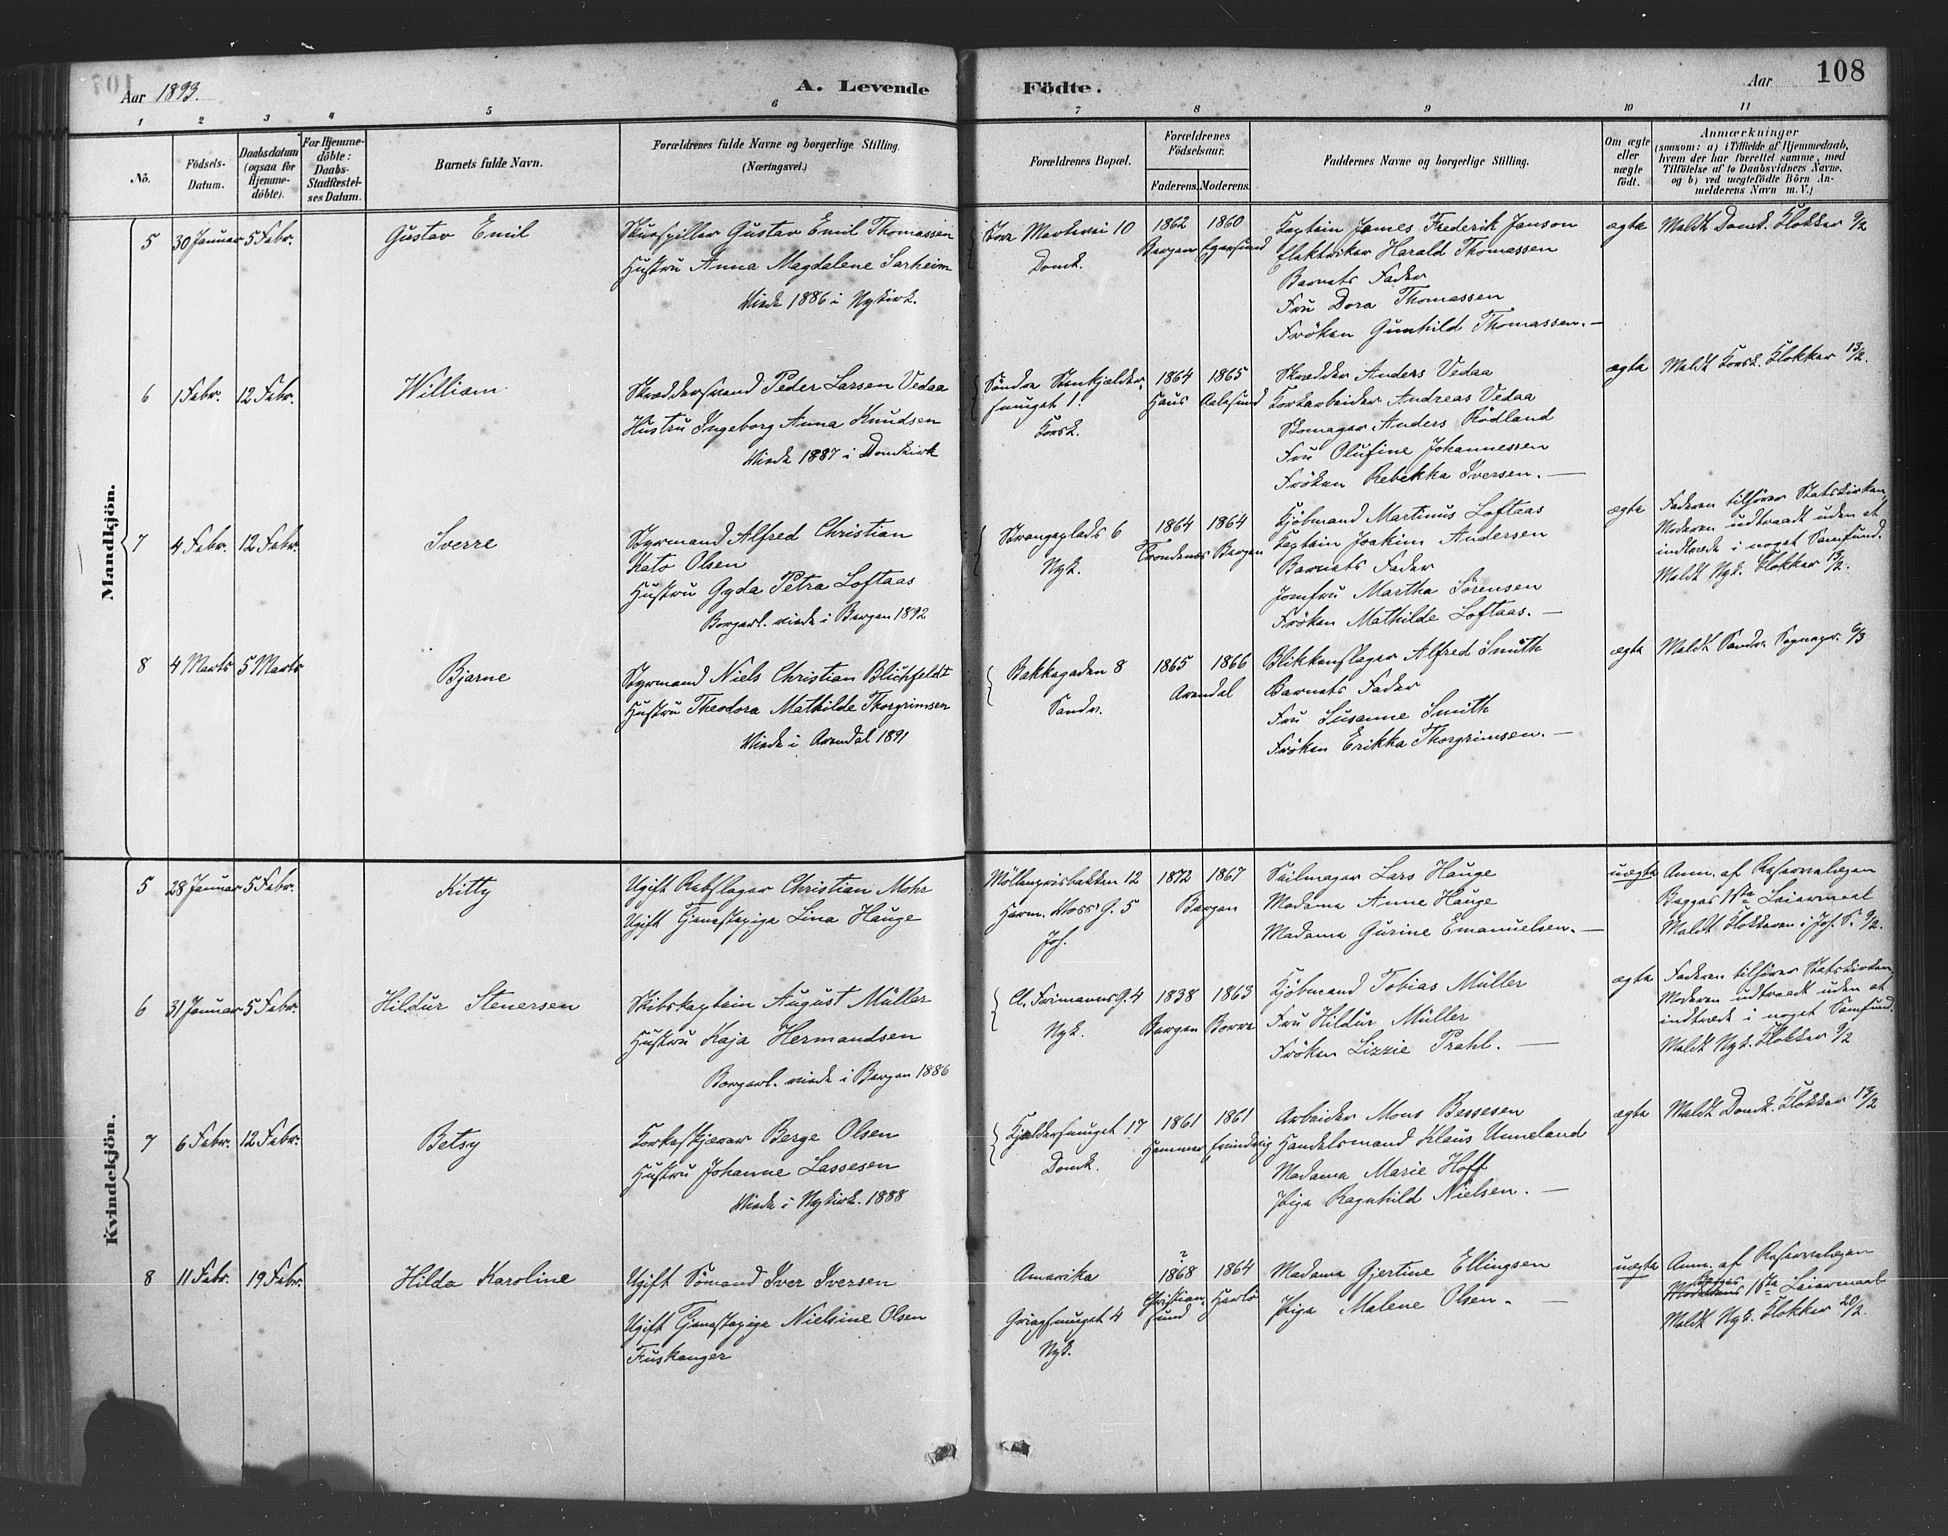 Aar 1893.
A. Levende Födte.
Aar
108
1 2 3 4 5 6 7 8 9 10 11
No.
Födsels-Datum.
Daabsdatum (ogsaa for Hjemme-döbte).
For Hjemme-döbte: Daabs-Stadfæstel-ses Datum.
Barnets fulde Navn.
Forældrenes fulde Navne og borgerlige Stilling.
(Næringsvei.)
Forældrenes Bopæl.
Forældrenes Födselsaar.
Faderens. Moderens.
Faddernes Navne og borgerlige Stilling.
Om ægte eller uægte födt.
Anmærkninger
(saasom: a) i Tilfælde af Hjemmedaab,
hvem der har forrettet samme, med
Tilföielse af to Daabsvidners Navne,
og b) ved uægtefödte Börn An-
melderens Navn m. V.)
Mandkjön.
5 30 Januar 5 Febr.
Gustav Emil
Skuespiller Gustav Emil Thomassen
Hustru Anna Magdalene Sørheim
Viede 1886 i Nykirk.
Markevei 10
Domk.
1862 1860
Bergen Egersund
Kaptein James Frederik Janson
Elektriker Harald Thomassen
Barnets Fader
Fru Dora Thomassen
Fröken Gunhild Thomassen.
ægte
Meldt Domk. Klokker 9/2
6 1 Febr. 12 Febr.
William
Skræddersvend Peder Larsen Vedaa
Hustru Ingeborg Anna Knudsen
Viede 1887 i Domkirk
Söndre Stenkjelder-
smuget 1.
Korsk.
1864 1865
Haus Aalesund
Skrædder Anders Vedaa
Korkarbeider Andreas Vedaa
Skomager Anders Rödland
Fru Olufine Johannessen
Fröken Rebekka Iversen.
ægte
Meldt Korsk. Klokker 13/2.
7 4 Febr. 12 Febr.
Sverre
Styrmand Alfred Christian
Kato Olsen
Hustru Gyda Petra Loftaas
Borgerl. viede i Bergen 1892
Strangeplads 6
Nyk.
1864 1864
Trondenæs Bergen
Kjöbmand Martinus Loftaas
Kaptein Joakim Andersen
Barnets Fader
Jomfru Martha Sörensen
Fröken Mathilde Loftaas.
ægte
Faderen tilhörer Statskirken,
Moderen udtraadt uden at
indtræde i noget Samfund.
Meldt Nyk. Klokker 13/2.
8 4 Marts 5 Marts
Bjarne
Styrmand Niels Christian Blichfeldt
Hustru Theodora Mathilde Thorgrimsen
Viede i Arendal 1891
Bakkegaden 8
Sandv.
1865 1866
Arendal
Blikkenslager Alfred Smith
Barnets Fader
Fru Susanne Smith
Fröken Erikka Thorgrimsen.
ægte
Meldt Sandv. Sognepr. 6/3
Kvindekjön.
5 28 Januar 5 Febr.
Kitty
Ugift Rebslager Christian Mohr
Ugift Tjenestepige Lina Hauge
Möllenprisbakken 12
Herm. Foss' G. 5
Joh.
1872 1867
Bergen
Seilmager Lars Hauge
Madame Anne Hauge
Madame Gurine Emanuelsen.
uægte
Anm. af Reservelægen
Begges 1ste Leiermaal
Meldt Klokkeren i Joh. S. 9/2.
6 31 Januar 5 Febr.
Hildur Stenersen
Skibskaptein August Müller
Hustru Kaja Hermandsen
Borgerl. viede i Bergen 1886
Cl. Frimannsg. 4
Nyk.
1838 1863
Bergen Borre
Kjöbmand Tobias Müller
Fru Hildur Müller
Fröken Lizzie Prahl.
ægte
Faderen tilhörer Statskirken,
Moderen udtraadt uden at
indtræde i noget Samfund.
Meldt Nyk. Klokker 9/2
7 6 Febr. 12 Febr.
Betsy
Korkeskjærer Berge Olsen
Hustru Johanne Lassesen
Viede i Nykirk. 1888
Kjeldersmuget 17
Domk.
1861 1861
Hammer Evindvig
Arbeider Mons Bessesen
Handelsmand Klaus Unneland
Madame Marie Hoff
Pige Ragnhild Nielsen.
ægte
Meldt Domk. Klokker 13/2
8 11 Febr. 19 Febr.
Hilda Karoline
Ugift Sömand Iver Iversen
Ugift Tjenestepige Nielsine Olsen
Fuskanger
Amerika
Griegsmuget 4
Nyk.
? 1868 1864
Christian-
sund Herlö
Madame Gjertine Ellingsen
Pige Malene Olsen.
uægte
Anm. af Reservelægen
Begges
Moderens 1ste Leiermaal
Meldt Nyk. Klokker 20/2.